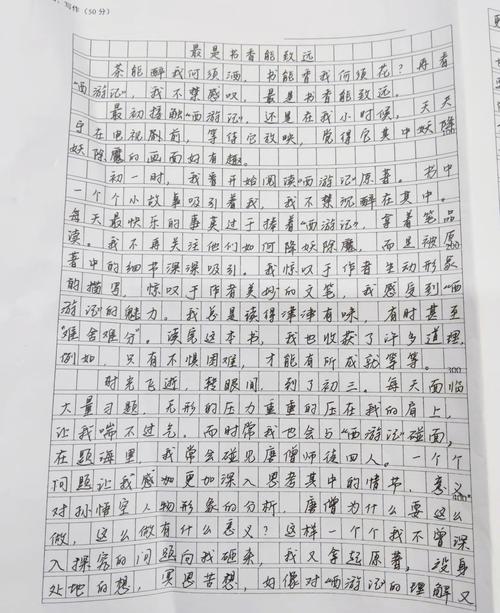 写作（50分）
最是书香能致远
茶能醉我何须酒，书能香我何须花？再看
“西游记”，我不禁感叹，最是书香能致远。
最初接触“西游记”，还是在我小时候，天天
守在电视剧前，等待它放映，觉得它其中妖
妖除魔的画面好有趣。
初一时，我看开始阅读“西游记”原著。书中
一个个小故事吸引着我，我不禁沉醉在其中。
每天最快乐的事莫过于捧着“西游记”，拿着笔品
读。我不再关注他们如何降妖除魔，而是被原
著中的细书深深吸引。我惊叹于作者生动形象
的描写，惊叹于作者美妙的文笔，我感受到“西
游记”的魅力。我总是读得津津有味，有时甚至
“难舍难分”。读完这本书，我也收获了许多道理，
例如，只有不惧困难，才能有所成就等等。
300
时光飞逝，转眼间，到了初三。每天面临
大量习题，无形的压力重重的压在我的肩上，
让我喘不过气。而时常我也会与“西游记”碰面，
在题海里，我常会碰见唐僧师徒四人。一个个
问题让我感加更加深入思考其中的情节，意义
400
对孙悟空人物形象的分析，唐僧为什么要这么
做，这么做有什么意义？这样一个个我不曾深
入探究的问题向我砸来，我又拿起原著，设身
处地的想，冥思苦想，好像对“西游记”的理解又